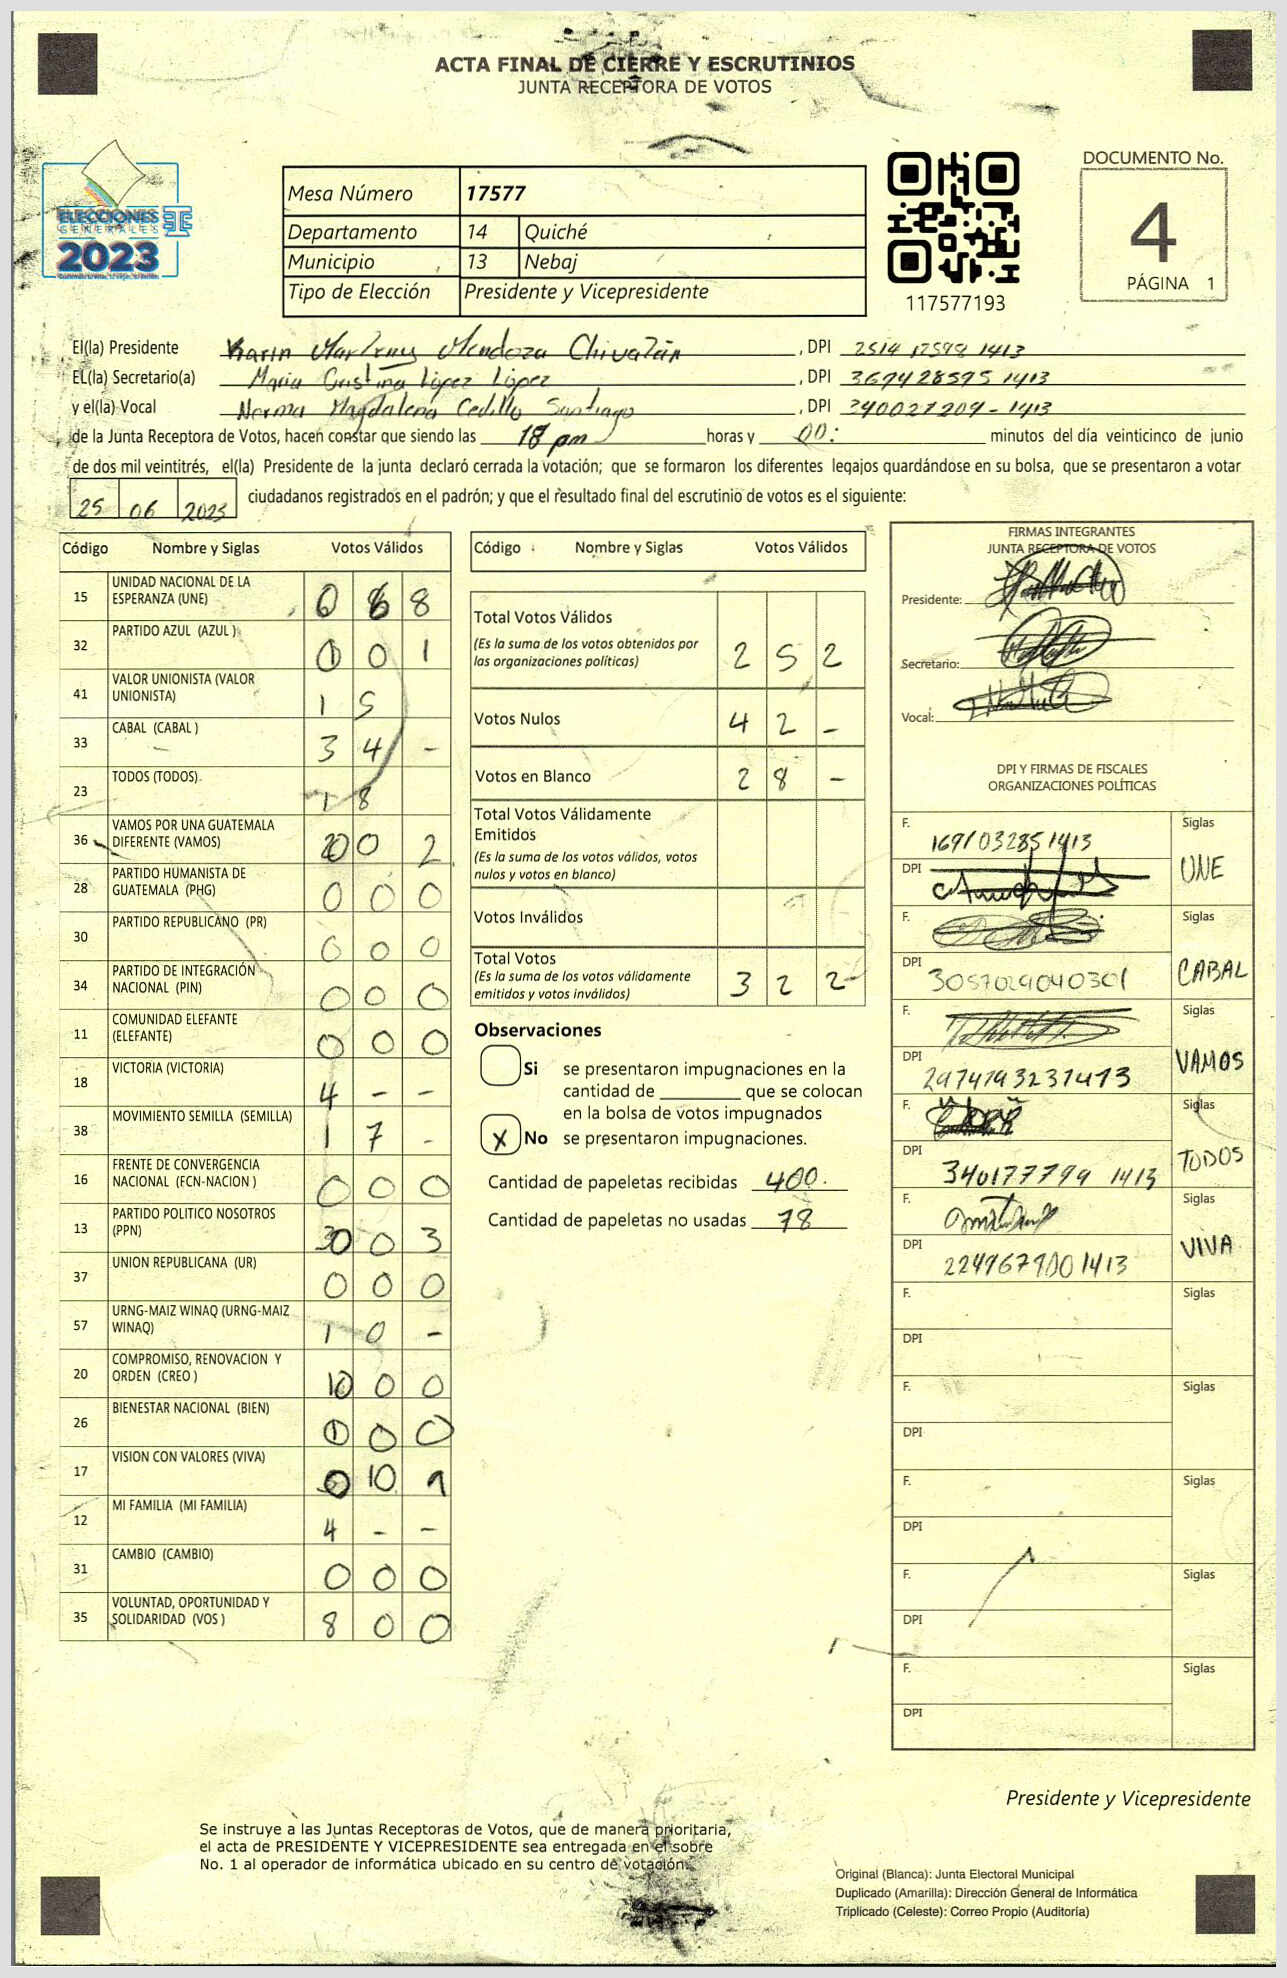 ACTA FINAL DE CIERRE Y ESCRUTINIOS
JUNTA RECEPTORA DE VOTOS
ELECCIONES
GENERALES
2023
Mesa Número 17577
Departamento 14 Quiché
Municipio 13 Nebaj
Tipo de Elección Presidente y Vicepresidente
117577193
DOCUMENTO No.
4
PÁGINA 1
El(la) Presidente Karin Mendoza , DPI 2514 12598 1413
EL(la) Secretario(a) Maria Cristina López López , DPI 369428595 1413
y el(la) Vocal Norma Magdalena Cedillo Santiago , DPI 340027209-1413
de la Junta Receptora de Votos, hacen constar que siendo las 18 pm horas y 00: minutos del día veinticinco de junio
de dos mil veintitrés, el(la) Presidente de la junta declaró cerrada la votación; que se formaron los diferentes legajos guardándose en su bolsa, que se presentaron a votar
25 06 2023 ciudadanos registrados en el padrón; y que el resultado final del escrutinio de votos es el siguiente:
Código Nombre y Siglas Votos Válidos
15 UNIDAD NACIONAL DE LA
ESPERANZA (UNE) 0 6 8
32 PARTIDO AZUL (AZUL ) 0 0 1
41 VALOR UNIONISTA (VALOR
UNIONISTA) 1 5
33 CABAL (CABAL ) 3 4 -
23 TODOS (TODOS) 1 8
36 VAMOS POR UNA GUATEMALA
DIFERENTE (VAMOS) 20 0 2
28 PARTIDO HUMANISTA DE
GUATEMALA (PHG) 0 0 0
30 PARTIDO REPUBLICANO (PR) 0 0 0
34 PARTIDO DE INTEGRACIÓN
NACIONAL (PIN) 0 0 0
11 COMUNIDAD ELEFANTE
(ELEFANTE) 0 0 0
18 VICTORIA (VICTORIA) 4 - -
38 MOVIMIENTO SEMILLA (SEMILLA) 1 7 -
16 FRENTE DE CONVERGENCIA
NACIONAL (FCN-NACION ) 0 0 0
13 PARTIDO POLITICO NOSOTROS
(PPN) 30 0 3
37 UNION REPUBLICANA (UR) 0 0 0
57 URNG-MAIZ WINAQ (URNG-MAIZ
WINAQ) 1 0 -
20 COMPROMISO, RENOVACION Y
ORDEN (CREO ) 10 0 0
26 BIENESTAR NACIONAL (BIEN) 0 0 0
17 VISION CON VALORES (VIVA) 0 10 1
12 MI FAMILIA (MI FAMILIA) 4 - -
31 CAMBIO (CAMBIO) 0 0 0
35 VOLUNTAD, OPORTUNIDAD Y
SOLIDARIDAD (VOS ) 8 0 0
Código Nombre y Siglas Votos Válidos
Total Votos Válidos
(Es la suma de los votos obtenidos por
las organizaciones políticas) 2 5 2
Votos Nulos 4 2 -
Votos en Blanco 2 8 -
Total Votos Válidamente
Emitidos
(Es la suma de los votos válidos, votos
nulos y votos en blanco)
Votos Inválidos
Total Votos
(Es la suma de los votos válidamente
emitidos y votos inválidos) 3 2 2-
Observaciones
Si se presentaron impugnaciones en la
cantidad de ________ que se colocan
en la bolsa de votos impugnados
X No se presentaron impugnaciones.
Cantidad de papeletas recibidas 400.
Cantidad de papeletas no usadas 78
FIRMAS INTEGRANTES
JUNTA RECEPTORA DE VOTOS
Presidente:
Secretario:
Vocal:
DPI Y FIRMAS DE FISCALES
ORGANIZACIONES POLÍTICAS
F. 1691032851413 Siglas
DPI UNE
F. Siglas
DPI 3057029040301 CABAL
F. Siglas
DPI 2974193231413 VAMOS
F. Siglas
DPI 340177799 1413 TODOS
F. Siglas
DPI 2249679001413 VIVA
F. Siglas
DPI
F. Siglas
DPI
F. Siglas
DPI
F. Siglas
DPI
F. Siglas
DPI
Presidente y Vicepresidente
Se instruye a las Juntas Receptoras de Votos, que de manera prioritaria,
el acta de PRESIDENTE Y VICEPRESIDENTE sea entregada en el sobre
No. 1 al operador de informática ubicado en su centro de votación.
Original (Blanca): Junta Electoral Municipal
Duplicado (Amarilla): Dirección General de Informática
Triplicado (Celeste): Correo Propio (Auditoría)